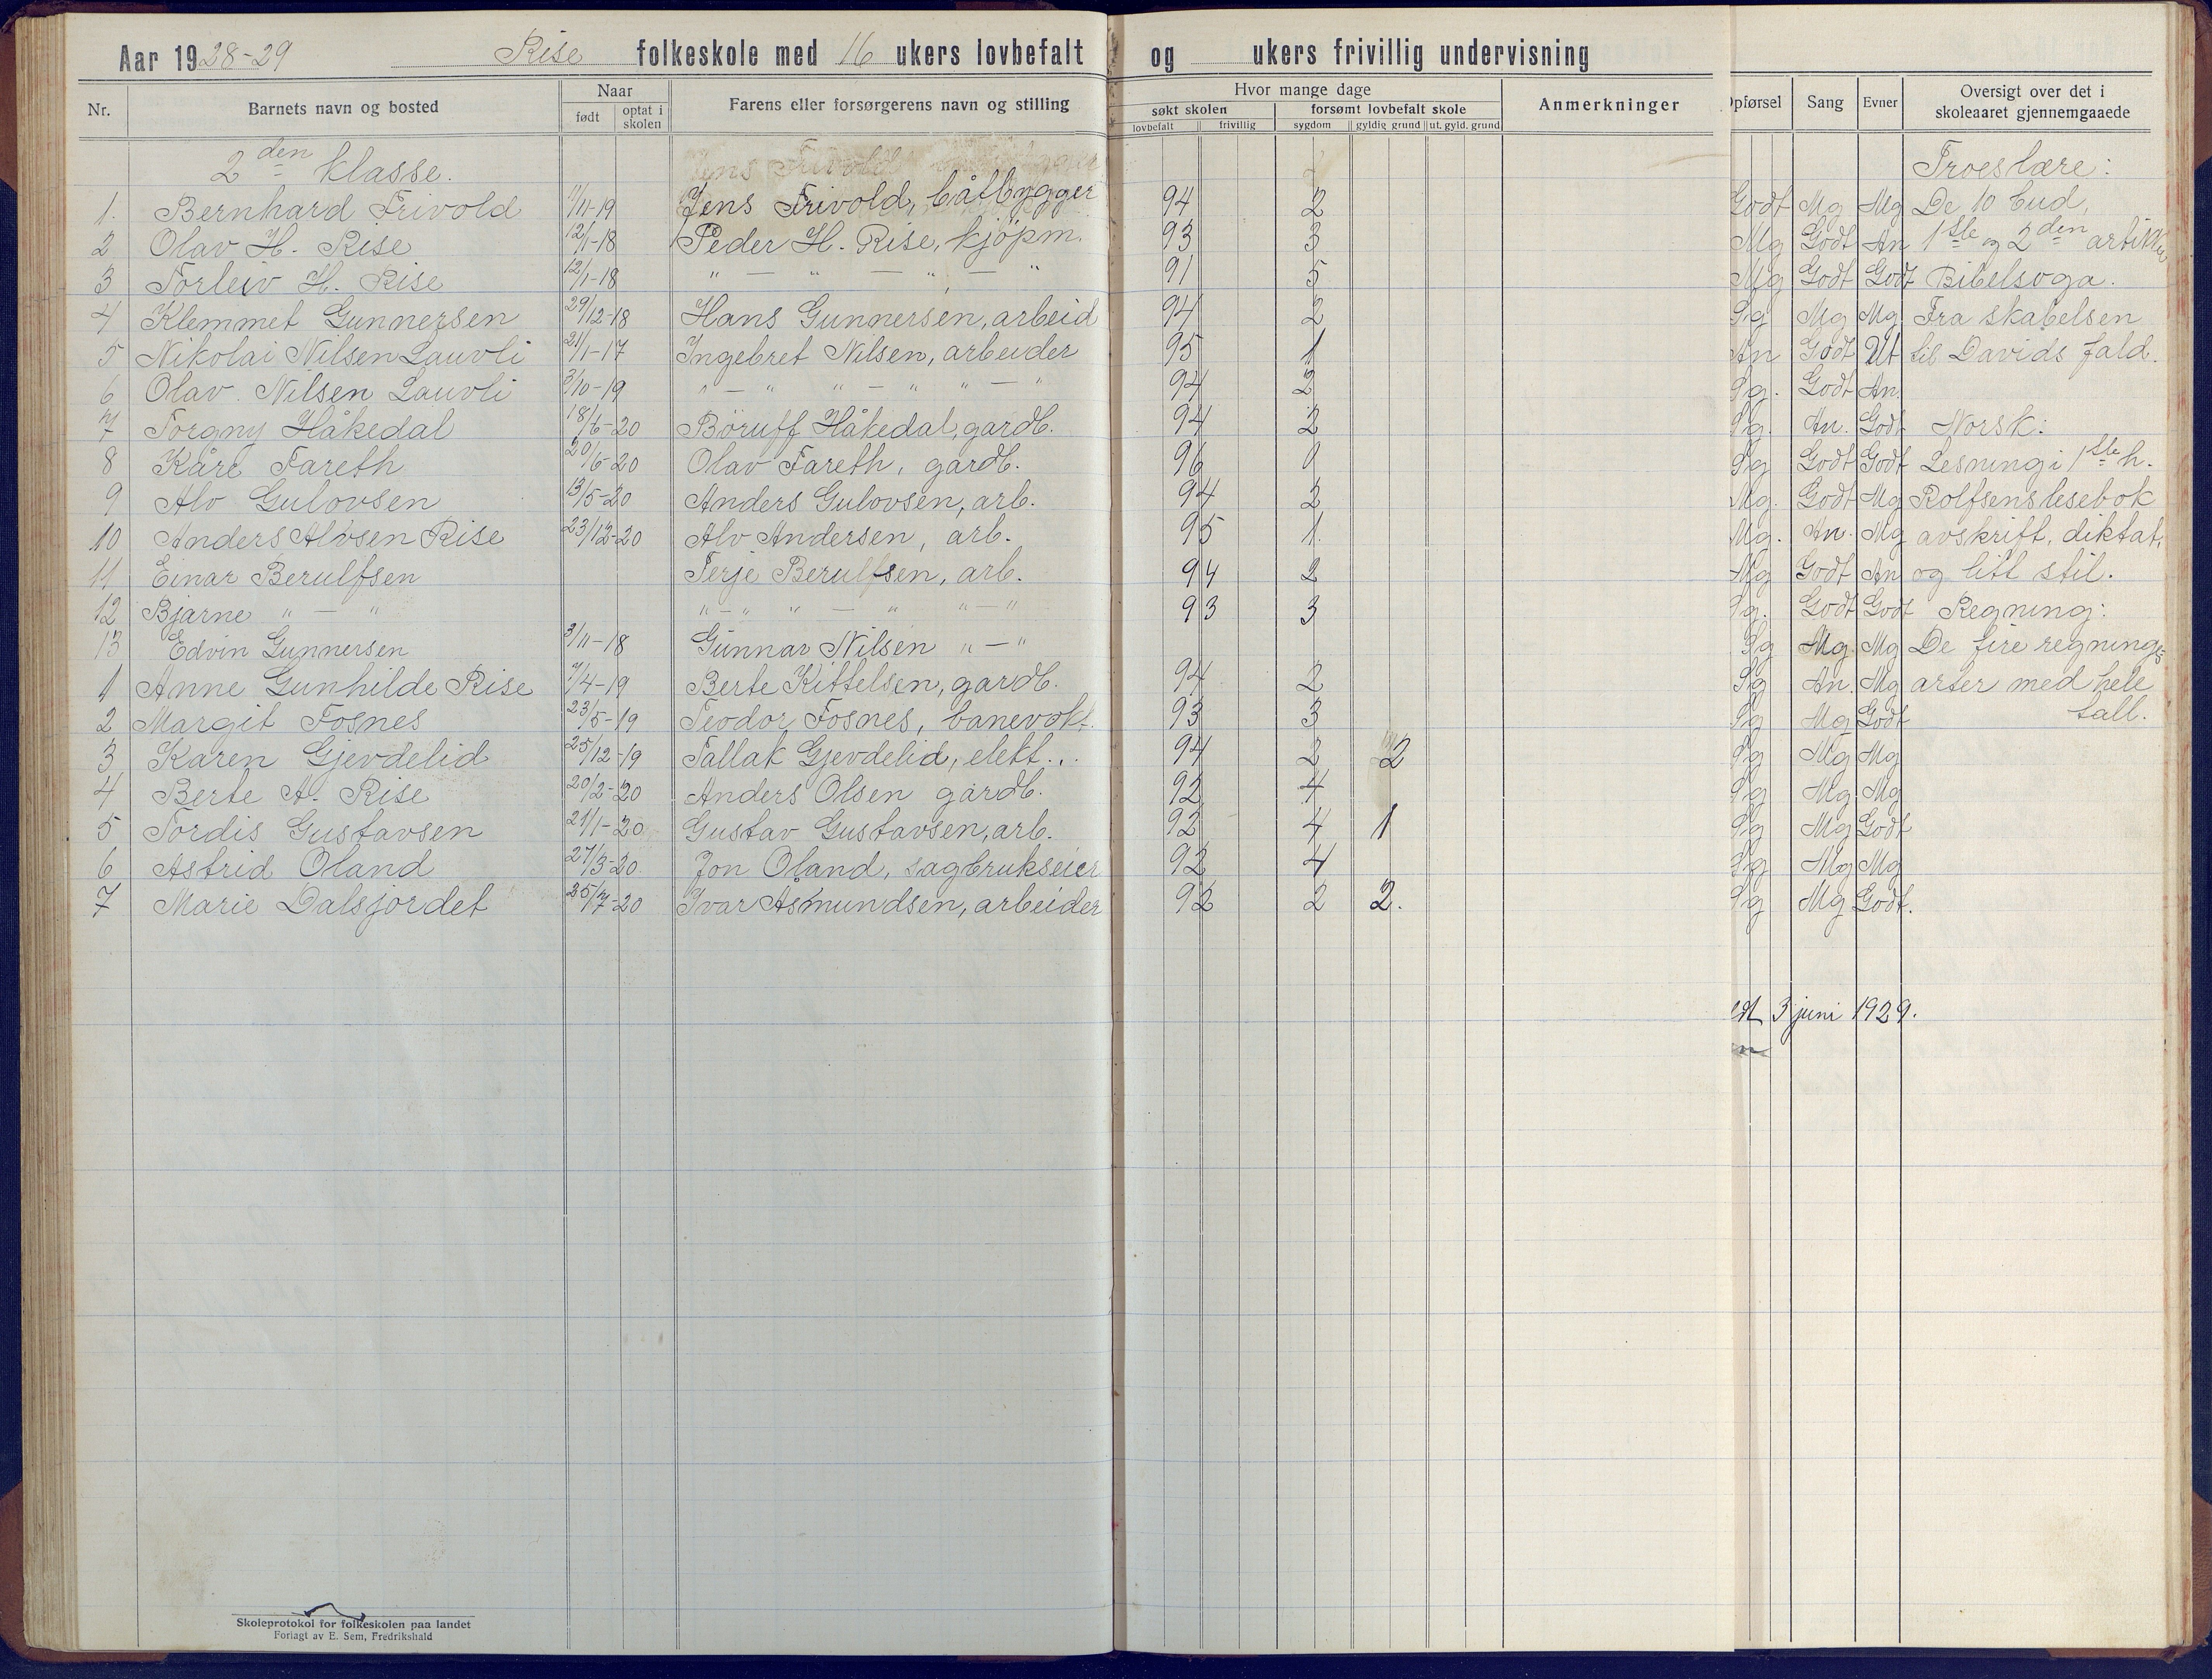 Aar 1928-29 Rise folkeskole med 16 ukers lovbefalt og ukers frivillig undervisning
Nr. Barnets navn og bosted Naar født optat i skolen Farens eller forsørgerens navn og stilling Hvor mange dage søkt skolen lovbefalt frivillig forsømt lovbefalt skole sygdom gyldig grund ut. gyld. grund Anmerkninger Opførsel Sang Evner Oversigt over det i skoleaaret gjennemgaaede
2den klasse. Jens Frivold Troeslære:
1. Bernhard Frivold 11-19 Jens Frivold, båtbygger 94 2 Godt Mg Mg De 10 bud,
2 Olav H. Rise 12/1-18 Peder H. Rise, kjöpm. 93 3 Mg Godt An 1ste og 2den artikkel
3 Torleiv H. Rise 12/1-18 " — " — " — " 91 5 Mg Godt Godt Bibelsoga.
4 Klemmet Gunnersen 29/12-18 Hans Gunnersen, arbeid 94 2 Sg Mg Mg Fra skabelsen
5 Nikolai Nilsen Lauvli 21/1-17 Ingebret Nilsen, arbeider 95 1 An Godt Ut til Davids fald.
6 Olav Nilsen Lauvli 3/10-19 " — " " — " " — " 94 2 Sg. Godt An.
7 Torgny Håkedal 18/6-20 Böruff Håkedal, gardb. 94 2 Sg. An. Godt Norsk:
8 Kåre Fareth 20/6-20 Olav Fareth, gardb. 96 0 Sg Godt Godt Lesning i 1ste h.
9 Alv Gulovsen 13/5-20 Anders Gulovsen, arb. 94 2 Mg. Godt Mg Rolfsens lesebok
10 Anders Alvsen Rise 23/12-20 Alv Andersen, arb. 95 1. Mg. An. Mg avskrift, diktat,
11 Einar Berulfsen Terje Berulfsen, arb. 94 2 Mg Godt An og litt stil.
12 Bjarne " — " " — " " — " " — " 93 3 Sg. Godt Godt Regning:
13 Edvin Gunnersen 3/11-18 Gunnar Nilsen " — " Sg Mg Mg De fire regnings-
1 Anne Gunhilde Rise 7/4-19 Berte Kittelsen, gardb. 94 2 Sg An. Mg arter med hele
2 Margit Fosnes 23/5-19 Teodor Fosnes, banevokt. 93 3 Sg Mg Godt tall.
3 Karen Gjevdelid 25/12-19 Tallak Gjevdelid, elekt... 94 2 2 Sg Mg Mg
4 Berte A. Rise 20/2-20 Anders Olsen gardb. 92 4 Sg Mg Mg
5 Tordis Gustavsen 21/1-20 Gustav Gustavsen, arb. 92 4 1 Sg Mg Godt
6 Astrid Öland 27/3-20 Jon Öland, sagbrukseier 92 4 Sg Mg Mg
7 Marie Dalsjordet 25/7-20 Ivar Asmundsen, arbeider 92 2 2. Sg Mg Godt.
3 juni 1929.
Skoleprotokol for folkeskolen paa landet
Forlagt av E. Sem, Fredrikshald